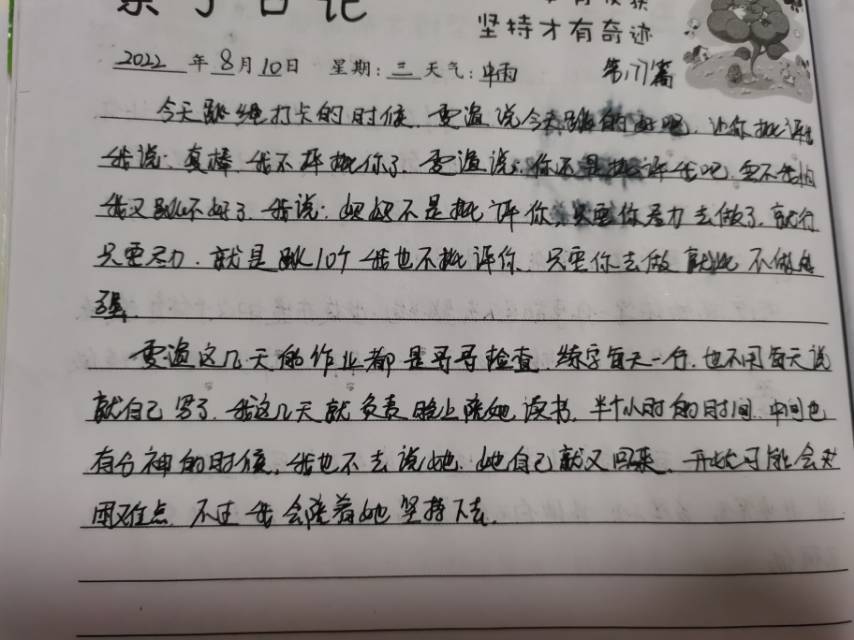 亲子日记
坚持才有奇迹
2022 年 8 月 10 日 星期: 三 天气: 中雨 第171篇
今天跳绳打卡的时候, 要渲说今天跳的好吧, 让你批评我
我说: 真棒, 我不批你了. 要渲说: 你还是批评我吧, 要不我怕
我又跳不好了. 我说: 妈妈不是批评你, 只要你尽力去做了, 就行
只要尽力, 就是跳10个我也不批评你, 只要你去做就比不做
强.
这几天的作业都是哥哥检查, 练字每天一行, 也不用每天说
就自己写了, 我这几天就负责晚上陪她读书, 半个小时的时间, 中间也
有分神的时候, 我也不去说她, 她自己就又回来, 开始可能会
困难点, 不过我会陪着她坚持下去.